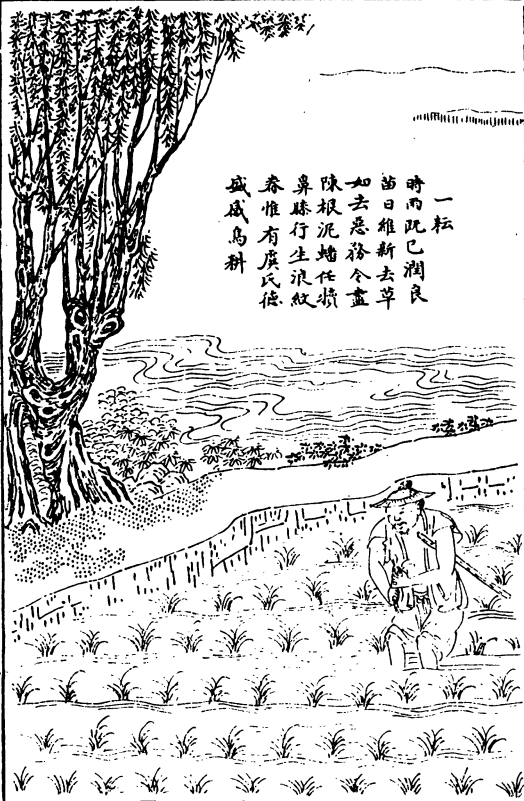 一耘
時雨既已潤良
苗日維新去草
如去惡務令盡
陳根泥蟠任犢
鼻膝行生浪紋
眷惟有虞氏德
盛感鳥耕